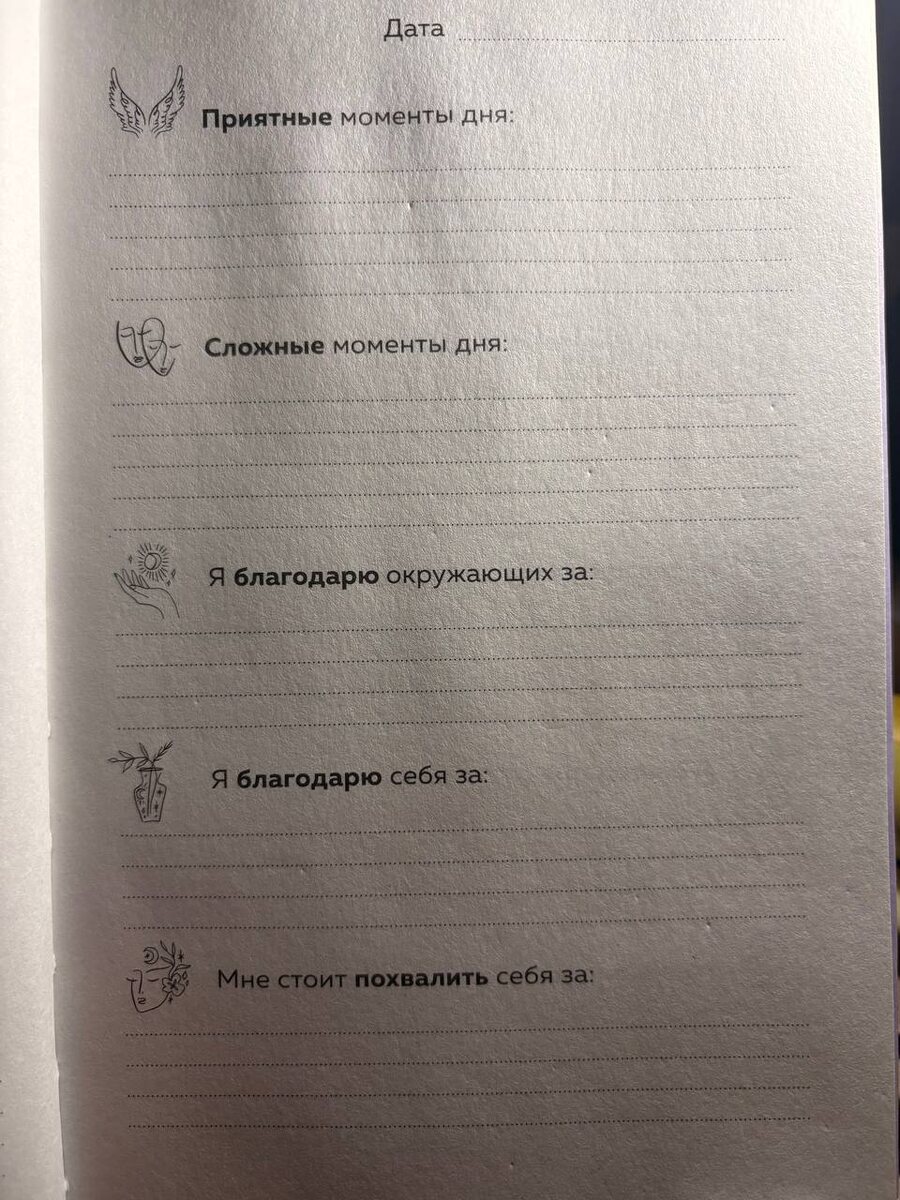 Дата
Приятные моменты дня:
Сложные моменты дня:
Я благодарю окружающих за:
Я благодарю себя за:
Мне стоит похвалить себя за: